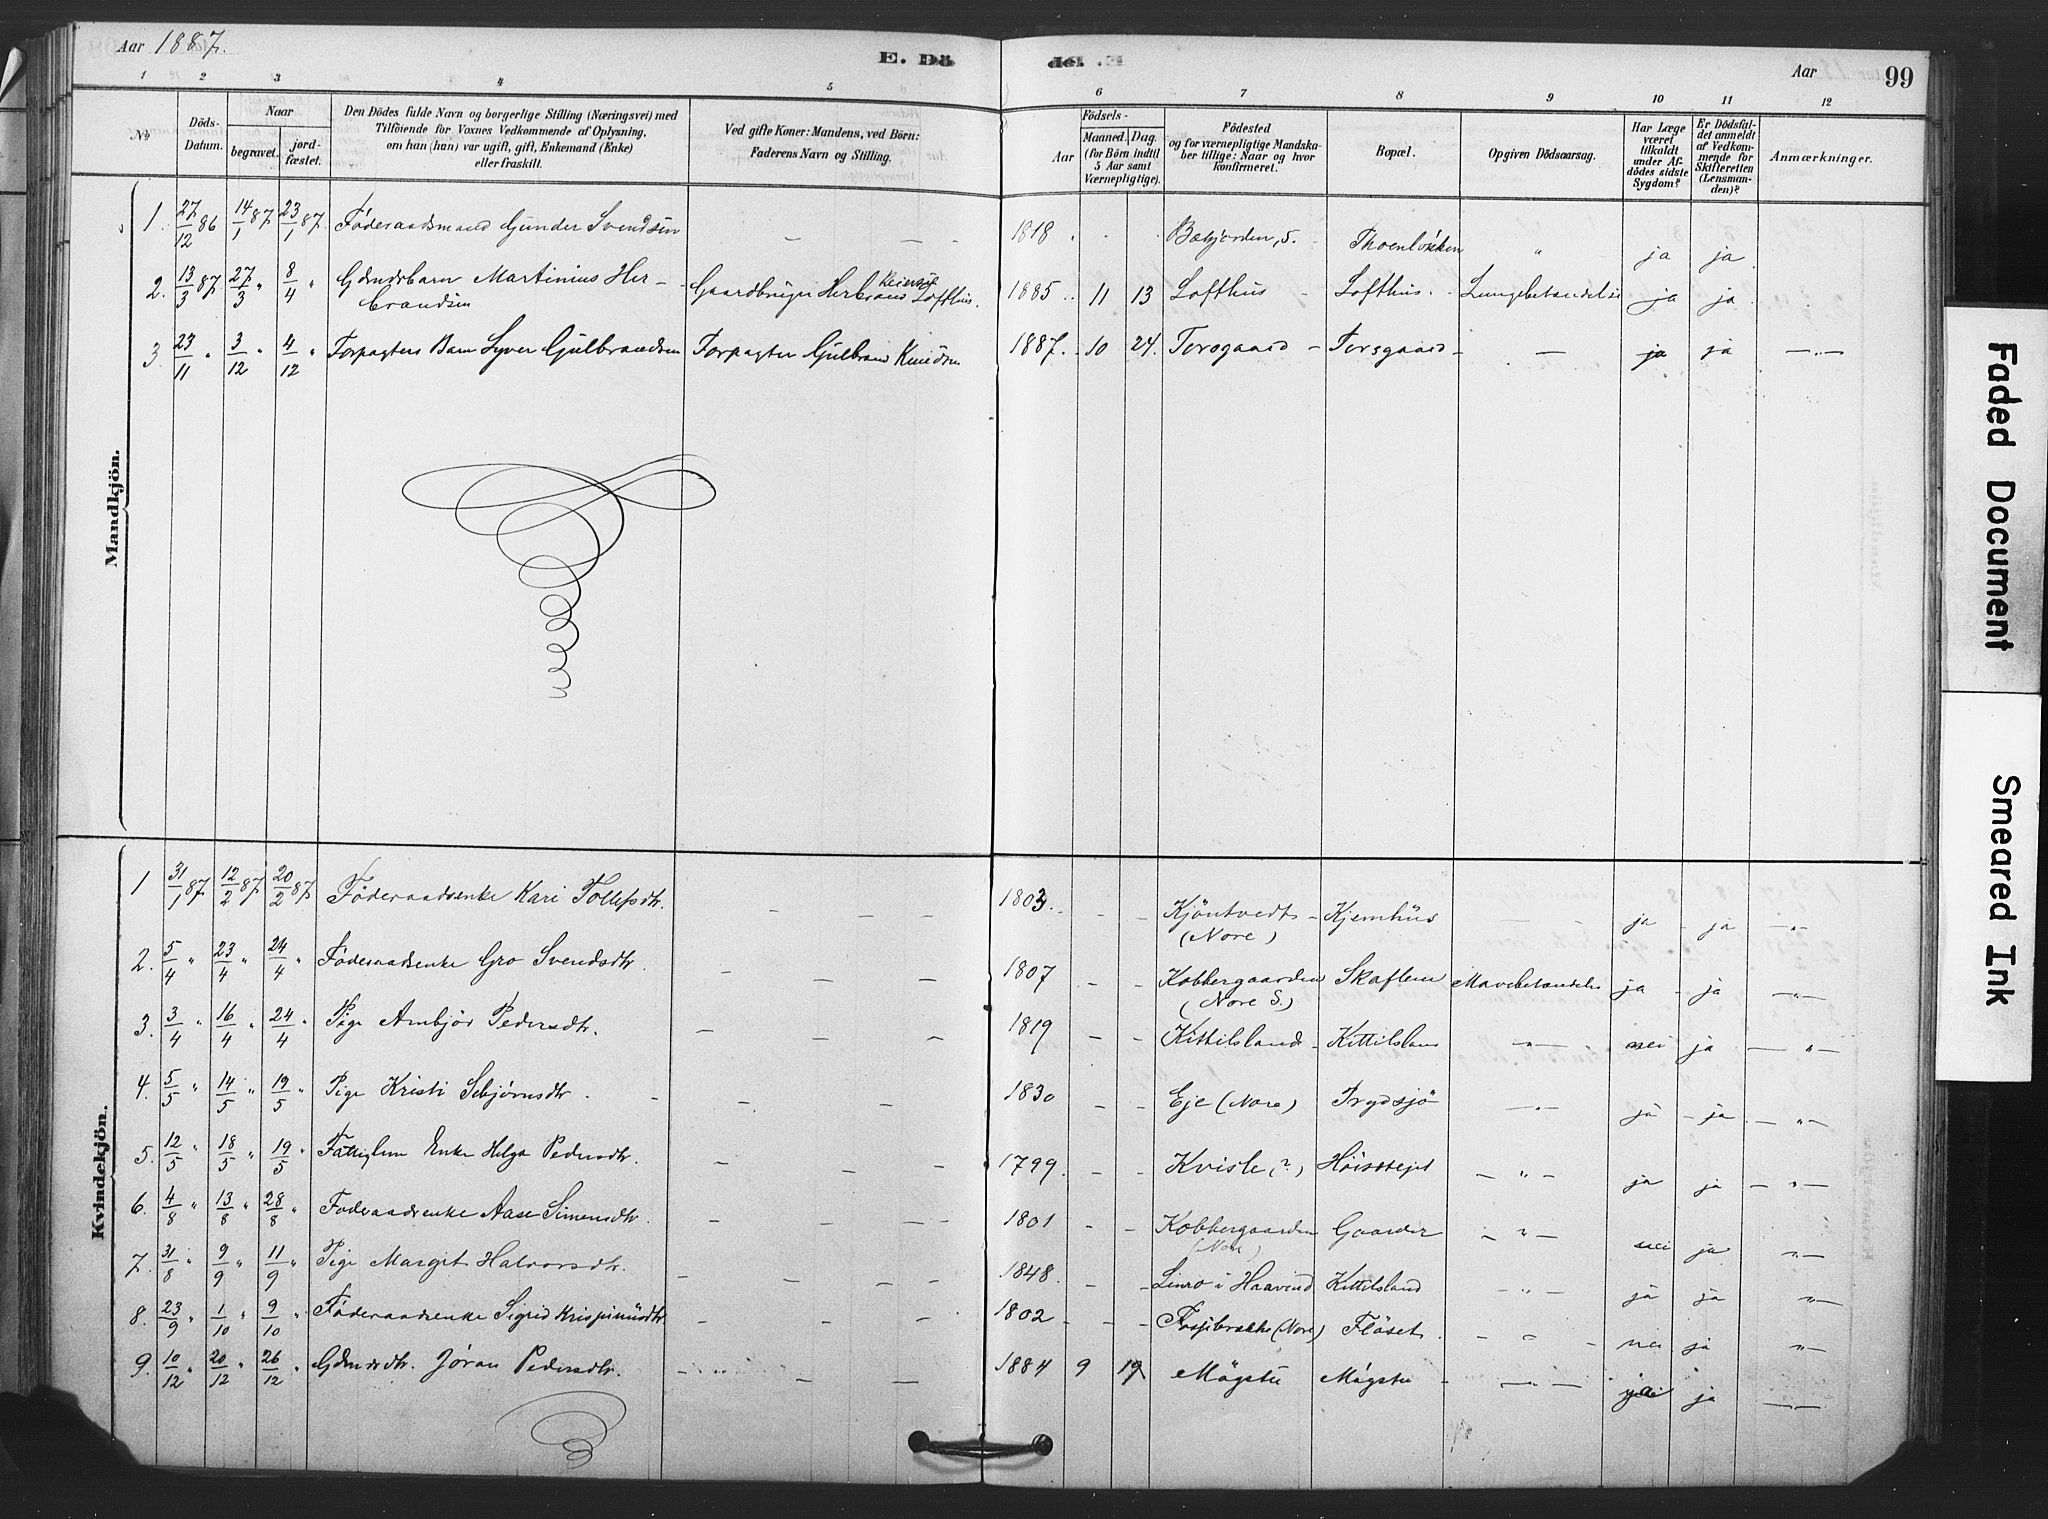 Aar 1887.
E. Dö
de. E.
Aar
99
1 2 3 4 5 6 7 8 9 10 11 12
No
Döds-Datum.
Naar
begravet.
jordfæstet.
Den Dödes fulde Navn og borgerlige Stilling (Næringsvei) med
Tilföiende for Voxnes Vedkommende af Oplysning,
om han (hun) var ugift, gift, Enkemand (Enke)
eller fraskilt.
Ved gifte Koner: Mandens, ved Börn:
Faderens Navn og Stilling.
Födsels-
Aar
Maaned. Dag.
(for Börn indtil
5 Aar samt
Værnepligtige).
Födested
og for værnepligtige Mandska-
ber tillige: Naar og hvor
konfirmeret.
Bopæl.
Opgiven Dödsaarsag.
Har Læge
været
tilkaldt
under Af-
dödes sidste
Sygdom?
Er Dödsfal-
det anmeldt
af Vedkom-
mende for
Skifteretten
(Lensman-
den)?
Anmærkninger.
Mandkjön.
1. 27/12 86 14/1 87 23/1 87 Föderaadsmand Gunder Svendsen — — 1818 Thoenløkken " ja ja
2. 13/3 87 27/3 " 8/4 " Gdmdsbarn Martinius Her-
brandsen Gaardbruger Herbrand Lofthus. 1885 11 13 Lofthus Lofthus. Lungebetændelse ja ja
3. 23/11 " 3/12 " 4/12 " Forpagters Barn Syver Gulbrandsen Forpagter Gulbrand Knudsen 1887. 10 24. Torsgaard Torsgaard — ja ja —"—
Kvindekjön.
1 31/1 87 12/2 87 20/2 87 Föderaadsenke Kari Tollefsdtr. — — — 1803. — — Kjöntvedt
(Nore) Kjemhus ja ja —"—
2. 5/4 " 23/4 " 24/4 " Föderaadsenke Gro Svendsdtr. — — — 1807 — — Kobbergaarden
(Nore S.) Skaflem Mavebetændelse ja ja —"—
3. 3/4 " 16/4 " 24/4 " Pige Ambjör Pedersdtr. — — — 1819 — — Kittilsland Kittilsland —"— nei ja —"—
4. 5/5 " 14/5 " 19/5 " Pige Kristi Sebjörnsdtr. — — — 1830 — — Eje (Nore) Trydsjö —"— ja ja —"—
5. 12/5 " 18/5 " 19/5 " Fattiglem Enke Helga Pedersdtr. — — — 1799. — — Kvisle (?) —"— ja ja —"—
6. 4/8 " 13/8 " 28/8 " Föderaadsenke Aase Simensdtr. — — — 1801 — — Kobbergaarden
(Nore) Gaarder —"— nei ja —"—
7. 31/8 " 9/9 " 11/9 " Pige Margit Halvorsdtr. — — — 1848. — — i Kittilsland —"— ja ja —"—
8. 23/9 " 1/10 " 9/10 " Föderaadsenke Sigrid Krispinusdtr. — — — 1802 — — (Nore) Flöset. — " — nei ja —"—
9. 10/12 " 20/12 " 26/12 " Gdmdsdtr. Jöran Pedersdtr. — — — 1884 9 19 Mögstu Mögstu —"— ja ja —"—
Faded Document
Smeared Ink